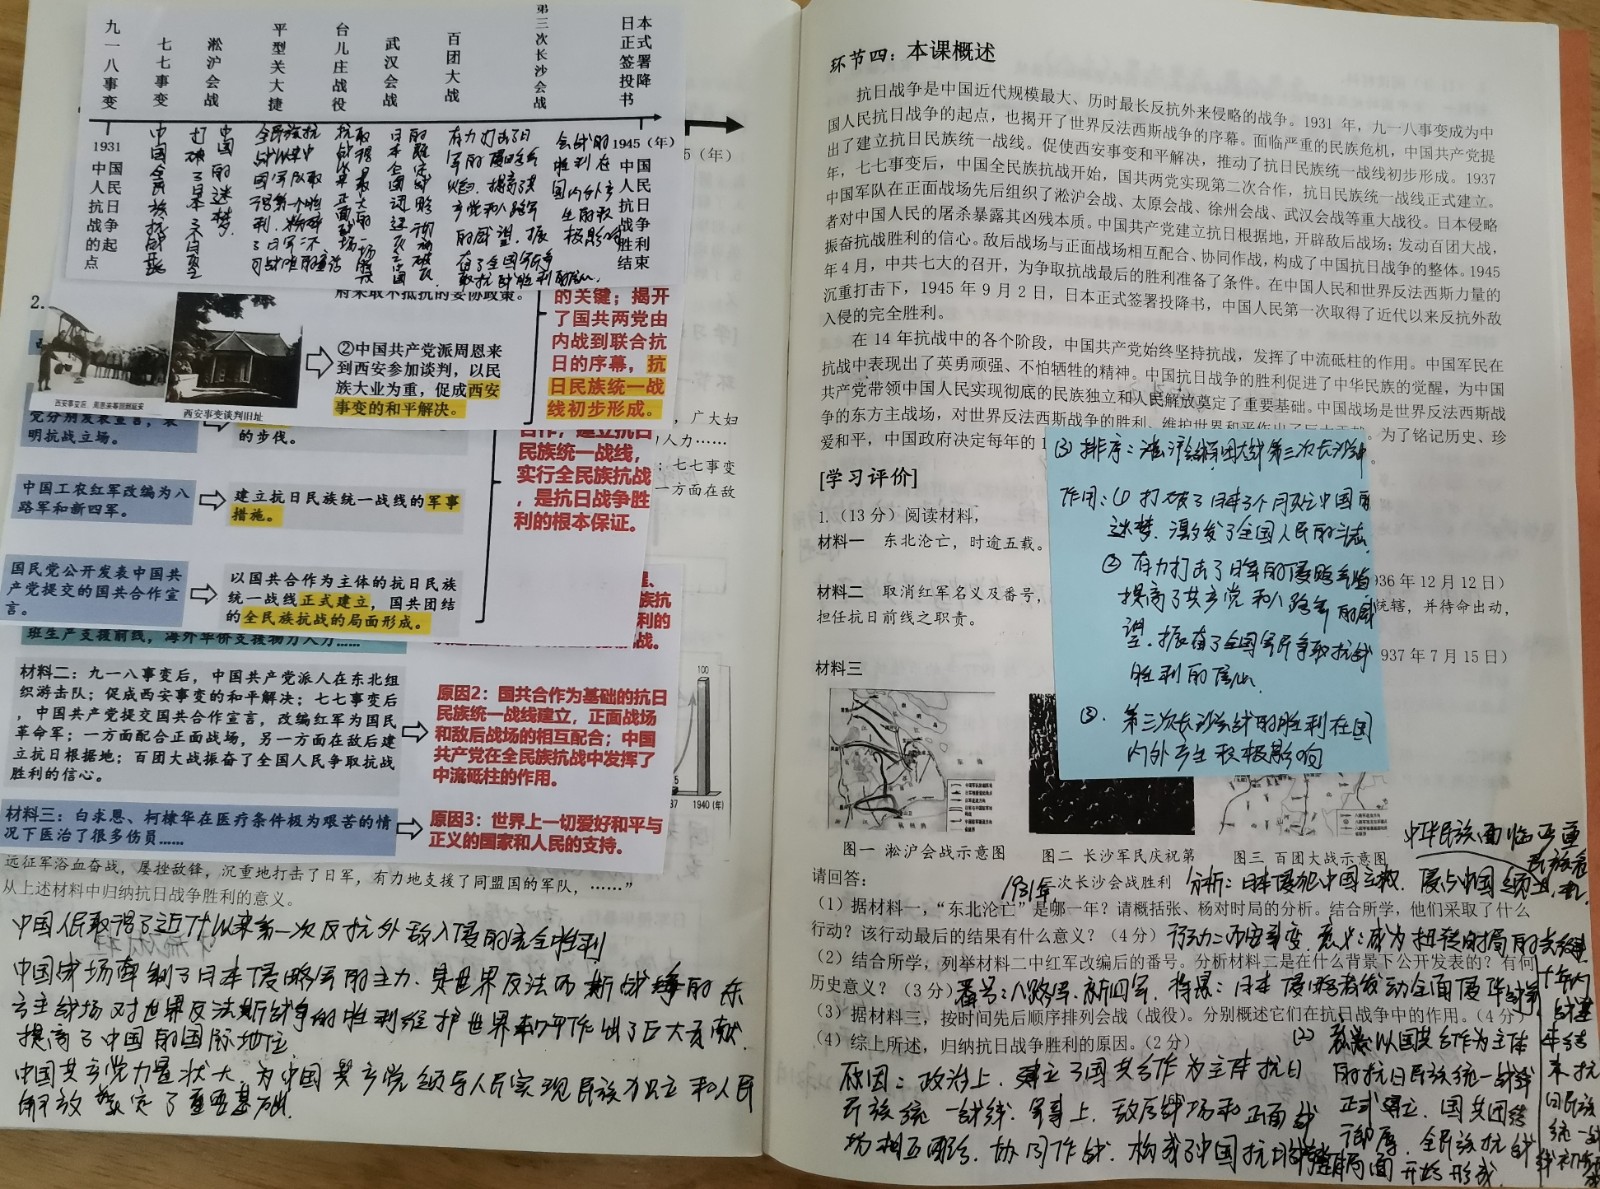 九一八事变
七七事变
淞沪会战
平型关大捷
台儿庄战役
武汉会战
百团大战
第三次长沙会战
日本正式签署投降书
1931
1945（年）
中国人民抗日战争的起点
中国全民族抗战开始
中国人民抗日战争胜利结束
5（年）
2.
府采取不抵抗的妥协政策。
西安事变后，周恩来等回到延安
西安事变谈判旧址
②中国共产党派周恩来
到西安参加谈判，以民
族大业为重，促成西安
事变的和平解决。
的关键；揭开
了国共两党由
内战到联合抗
日的序幕，抗
日民族统一战
线初步形成。
党分别发表宣言，表
明抗战立场。
的步伐。
合作，建立抗日
民族统一战线，
实行全民族抗战
，是抗日战争胜
利的根本保证。
，广大妇
人力……
；七七事变
一方面在敌
中国工农红军改编为八
路军和新四军。
建立抗日民族统一战线的军事
措施。
国民党公开发表中国共
产党提交的国共合作宣
言。
以国共合作为主体的抗日民族
统一战线正式建立，国共团结
的全民族抗战的局面形成。
班生产支援前线，海外华侨支援物力人力……
材料二：九一八事变后，中国共产党派人在东北组
织游击队；促成西安事变的和平解决；七七事变后
，中国共产党提交国共合作宣言，改编红军为国民
革命军；一方面配合正面战场，另一方面在敌后建
立抗日根据地；百团大战振奋了全国人民争取抗战
胜利的信心。
原因2：国共合作为基础的抗日
民族统一战线建立，正面战场
和敌后战场的相互配合；中国
共产党在全民族抗战中发挥了
中流砥柱的作用。
100
1940 (年)
材料三：白求恩、柯棣华在医疗条件极为艰苦的情
况下医治了很多伤员……
原因3：世界上一切爱好和平与
正义的国家和人民的支持。
远征军浴血奋战，屡挫敌锋，沉重地打击了日军，有力地支援了同盟国的军队，……”
从上述材料中归纳抗日战争胜利的意义。
中国人民取得了近代以来第一次反抗外敌入侵的完全胜利
中国战场牵制了日本侵略军的主力，是世界反法西斯战争的东
方主战场对世界反法斯战争的胜利维护世界和平作出了巨大贡献
提高了中国的国际地位
中国共产党力量状大，为中国共产党领导人民实现民族独立和人民
解放奠定了重要基础
环节四：本课概述
抗日战争是中国近代规模最大、历时最长反抗外来侵略的战争。1931 年，九一八事变成为中
国人民抗日战争的起点，也揭开了世界反法西斯战争的序幕。面临严重的民族危机，中国共产党提
出了建立抗日民族统一战线。促使西安事变和平解决，推动了抗日民族统一战线初步形成。1937
年，七七事变后，中国全民族抗战开始，国共两党实现第二次合作，抗日民族统一战线正式建立。
中国军队在正面战场先后组织了淞沪会战、太原会战、徐州会战、武汉会战等重大战役。日本侵略
者对中国人民的屠杀暴露其凶残本质。中国共产党建立抗日根据地，开辟敌后战场；发动百团大战，
振奋抗战胜利的信心。敌后战场与正面战场相互配合、协同作战，构成了中国抗日战争的整体。1945
年 4 月，中共七大的召开，为争取抗战最后的胜利准备了条件。在中国人民和世界反法西斯力量的
沉重打击下，1945 年 9 月 2 日，日本正式签署投降书，中国人民第一次取得了近代以来反抗外敌
入侵的完全胜利。
在 14 年抗战中的各个阶段，中国共产党始终坚持抗战，发挥了中流砥柱的作用。中国军民在
抗战中表现出了英勇顽强、不怕牺牲的精神。中国抗日战争的胜利促进了中华民族的觉醒，为中国
共产党带领中国人民实现彻底的民族独立和人民解放奠定了重要基础。中国战场是世界反法西斯战
争的东方主战场，对世界反法西斯战争的胜利、维护世界和平作出了巨大贡献。为了铭记历史、珍
爱和平，中国政府决定每年的 1
[学习评价]
1.（13 分）阅读材料，
材料一 东北沦亡，时逾五载。
936 年 12 月 12 日）
材料二 取消红军名义及番号，
统辖，并待命出动，
担任抗日前线之职责。
937 年 7 月 15 日）
材料三
(3) 排序：淞沪会战 百团大战 第三次长沙会战
作用：(1) 打破了日本3个月灭亡中国的
迷梦，激发了全国人民的斗志
② 有力打击了日军的侵略气焰
提高了共产党和八路军的威
望，振奋了全国军民争取抗战
胜利的信心
③. 第三次长沙会战的胜利在国
内外产生积极影响
图一 淞沪会战示意图
图二 长沙军民庆祝第
次长沙会战胜利
图三 百团大战示意图
请回答：
1931年
分析：日本侵犯中国主权，侵占中国
中华民族面临严重
民族危机
（1）据材料一，“东北沦亡”是哪一年？请概括张、杨对时局的分析。结合所学，他们采取了什么
行动？该行动最后的结果有什么意义？（4 分）
行动：西安事变 意义：成为扭转时局的关键
（2）结合所学，列举材料二中红军改编后的番号。分析材料二是在什么背景下公开发表的？有何
历史意义？（3 分）
番号：八路军、新四军，背景：日本侵略者发动全面侵华战争
十年内战基本结束，抗日民族统一战线初步形成
（3）据材料三，按时间先后顺序排列会战（战役）。分别概述它们在抗日战争中的作用。（4 分）
（4）综上所述，归纳抗日战争胜利的原因。（2 分）
(2) 意义：以国共合作为主体
的抗日民族统一战线
正式建立，国共团结
全民族抗战
局面开始形成
原因：政治上，建立了国共合作为主体抗日
民族统一战线，军事上，敌后战场和正面战
场相互配合，协同作战，构成了中国抗日战争整体